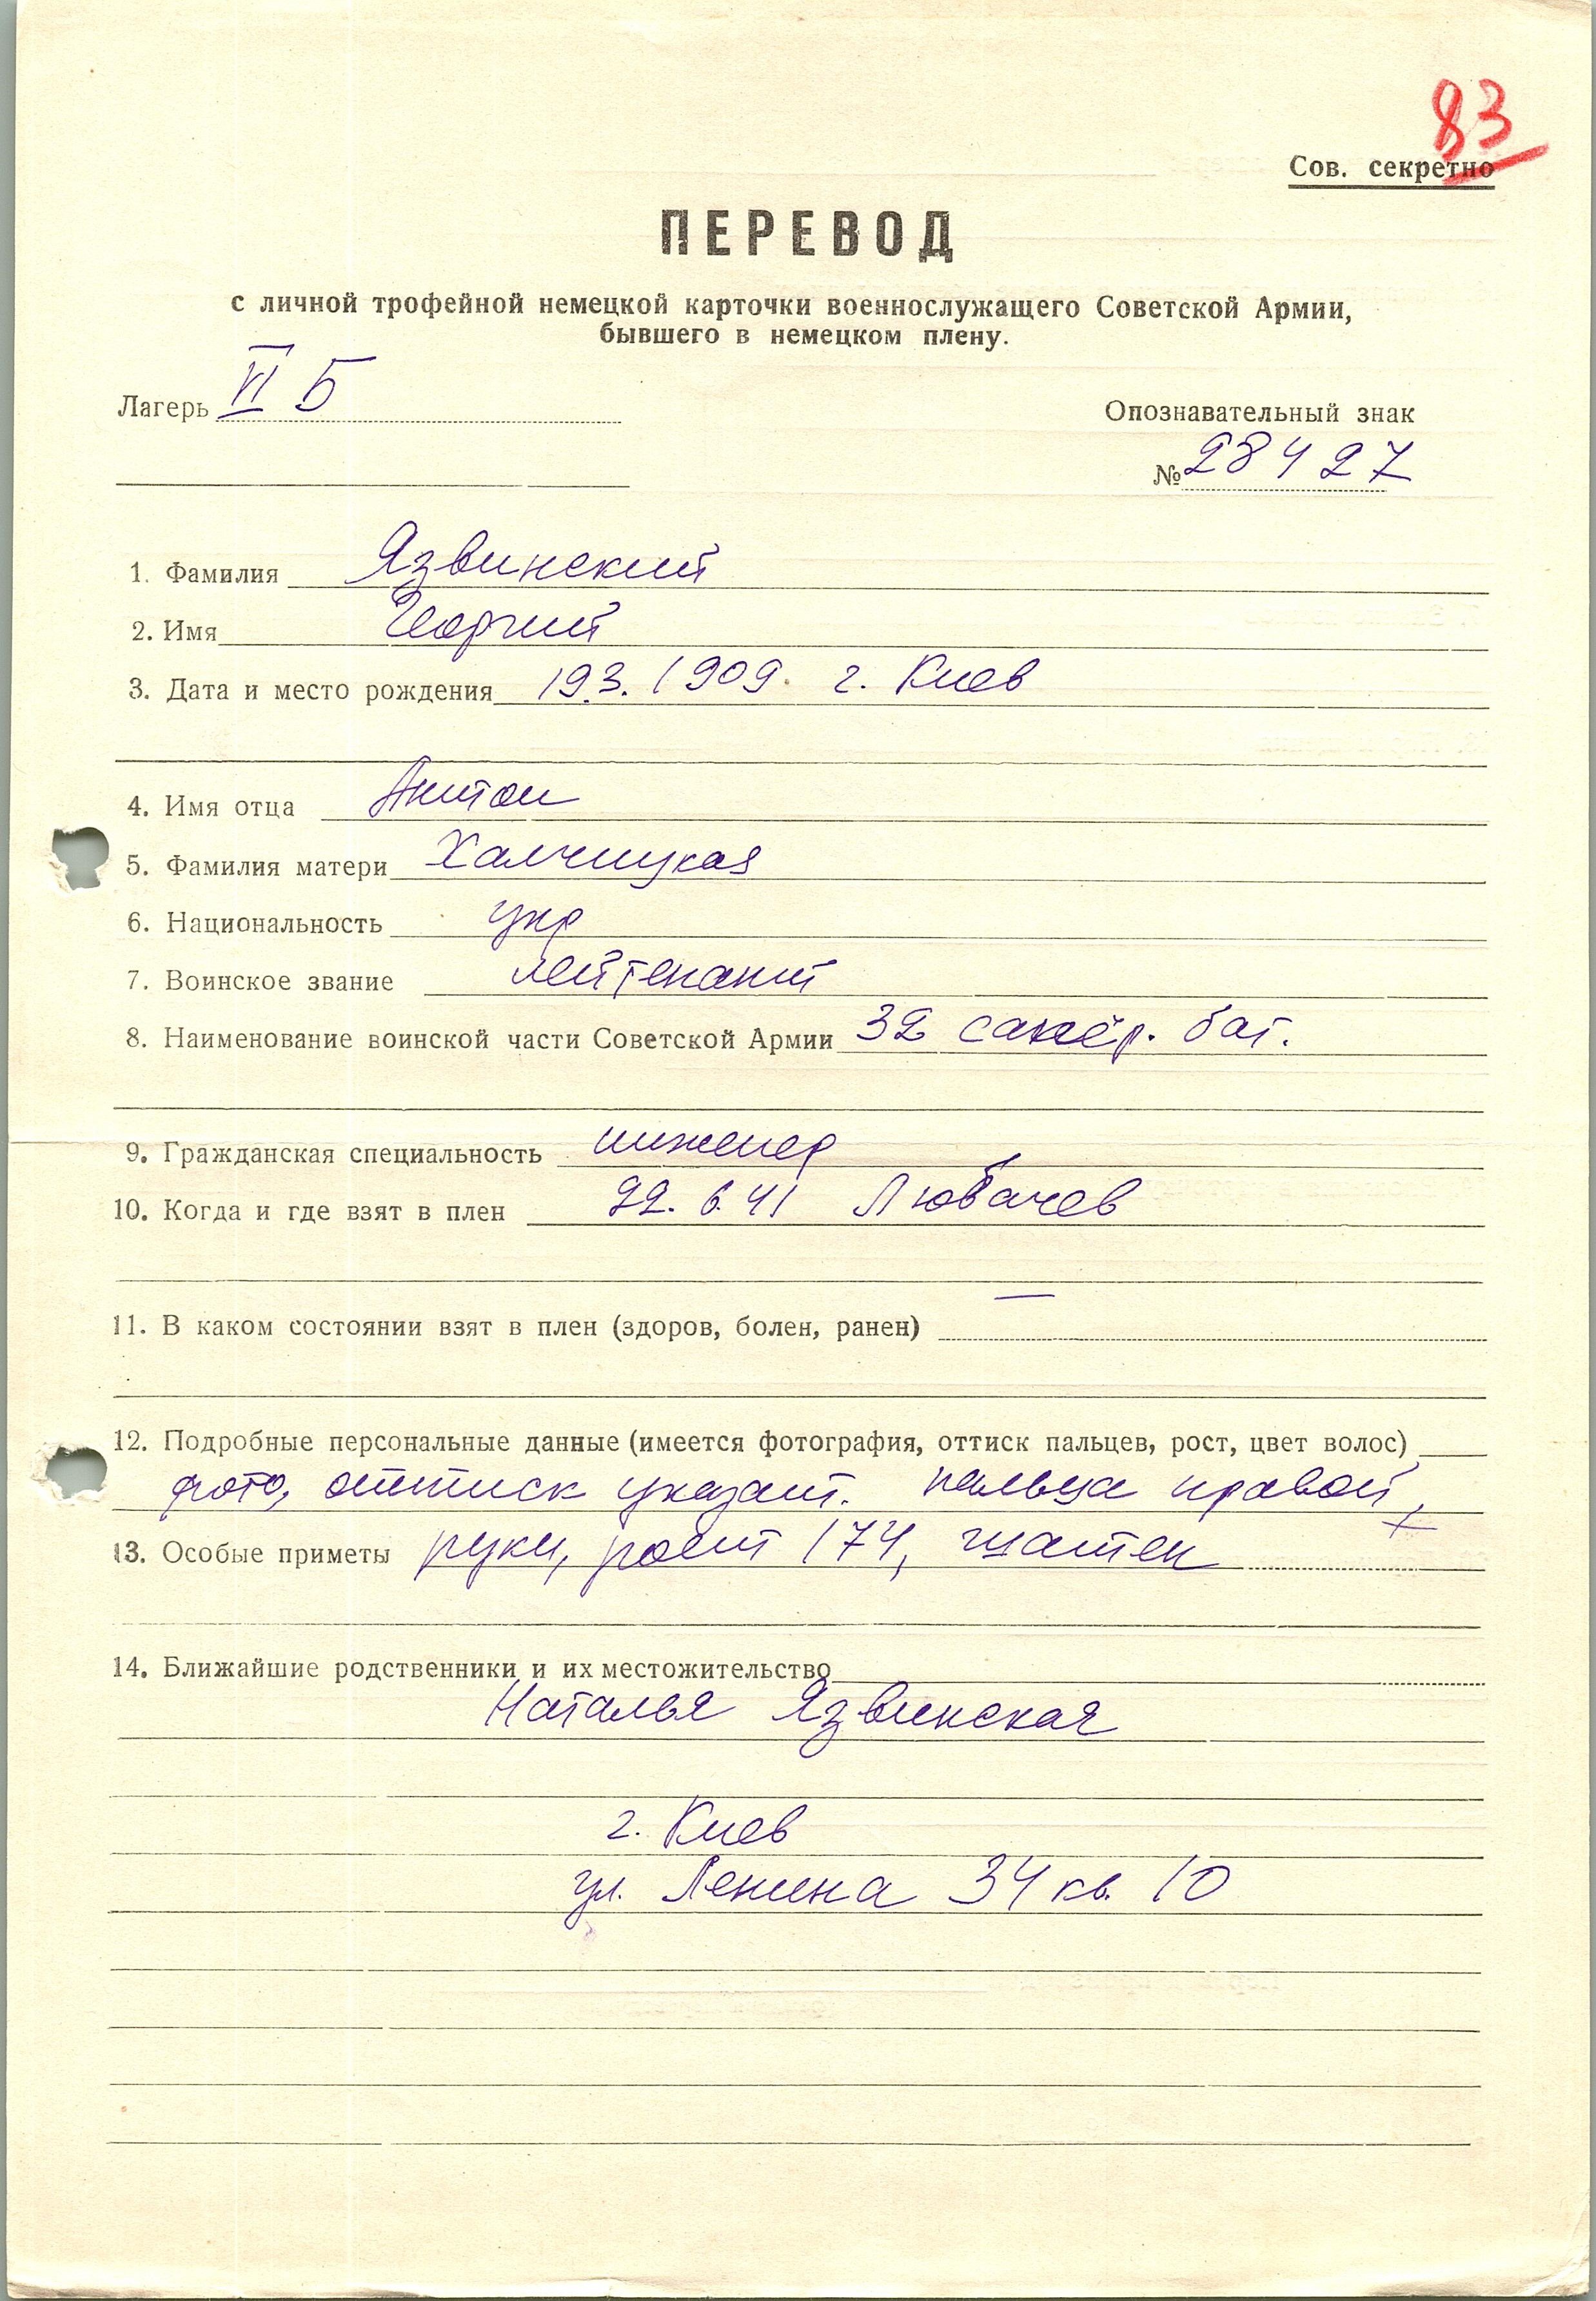 83
Сов. секретно
ПЕРЕВОД
с личной трофейной немецкой карточки военнослужащего Советской Армии,
бывшего в немецком плену.
Лагерь VI Б
Опознавательный знак
№ 28427
1. Фамилия Язвинский
2. Имя Георгий
3. Дата и место рождения 19.3.1909. г. Киев
4. Имя отца Антон
5. Фамилия матери Халчицкая
6. Национальность укр
7. Воинское звание лейтенант
8. Наименование воинской части Советской Армии 32 сапёр. бат.
9. Гражданская специальность инженер
10. Когда и где взят в плен 22. 6. 41 Любачев
11. В каком состоянии взят в плен (здоров, болен, ранен) —
12. Подробные персональные данные (имеется фотография, оттиск пальцев, рост, цвет волос)
фото, оттиск указат. пальца правой
13. Особые приметы руки, рост 174, шатен
14. Ближайшие родственники и их местожительство
Наталья Язвинская
г. Киев
ул. Ленина 34 кв. 10